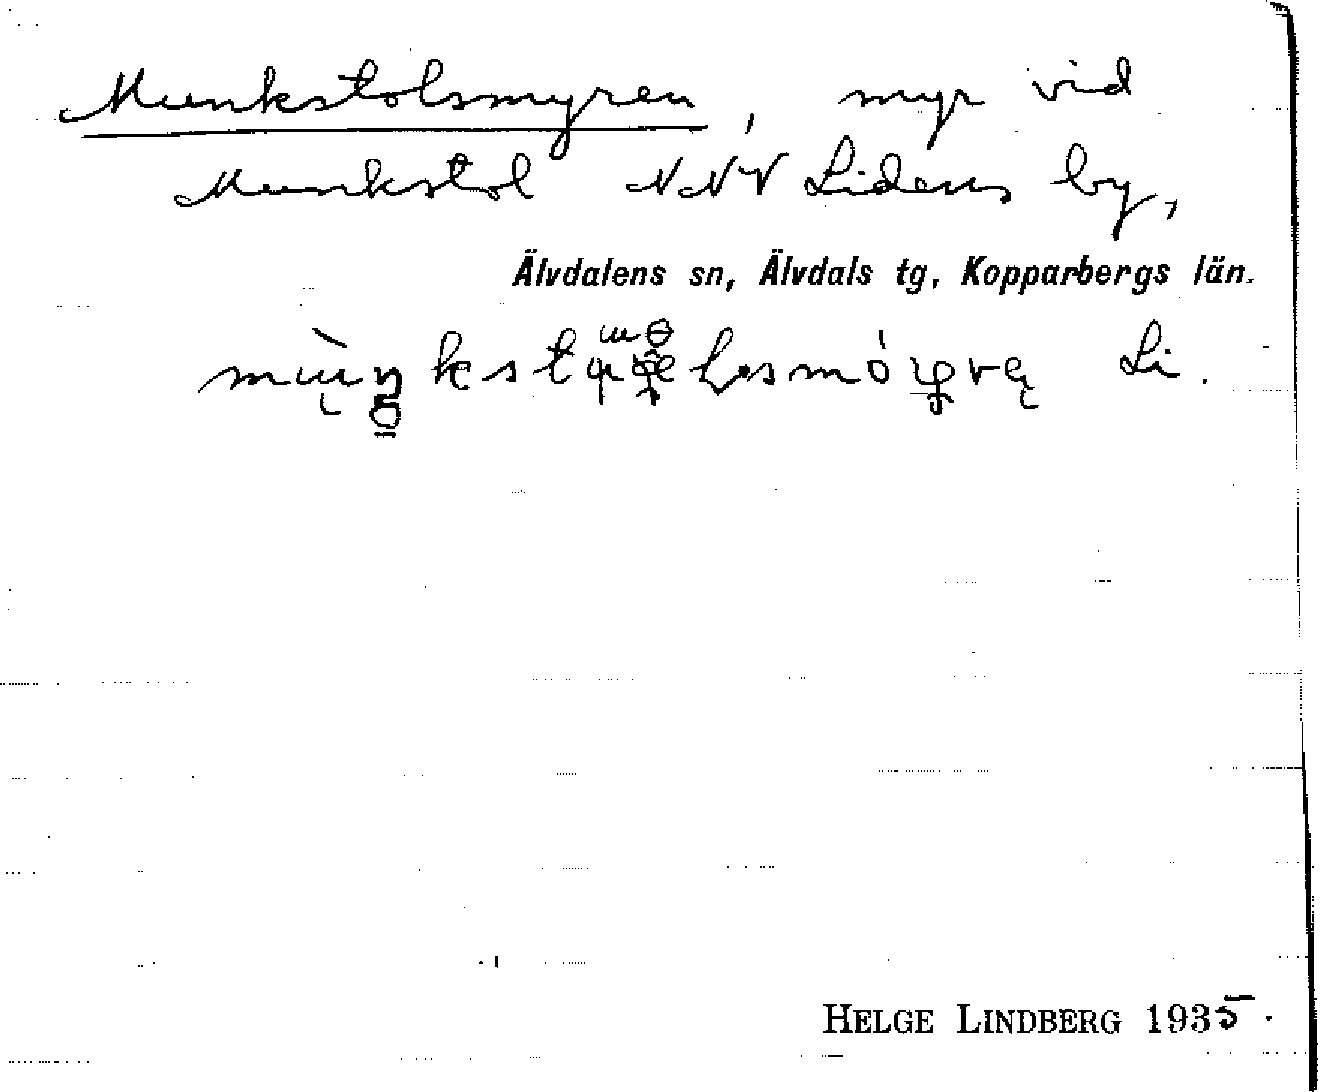 Munkstolsmyren, myr vid
Munkstol NNV Lidens by,
Älvdalens sn, Älvdals tg, Kopparbergs län.
Li.
HELGE LINDBERG 1935.